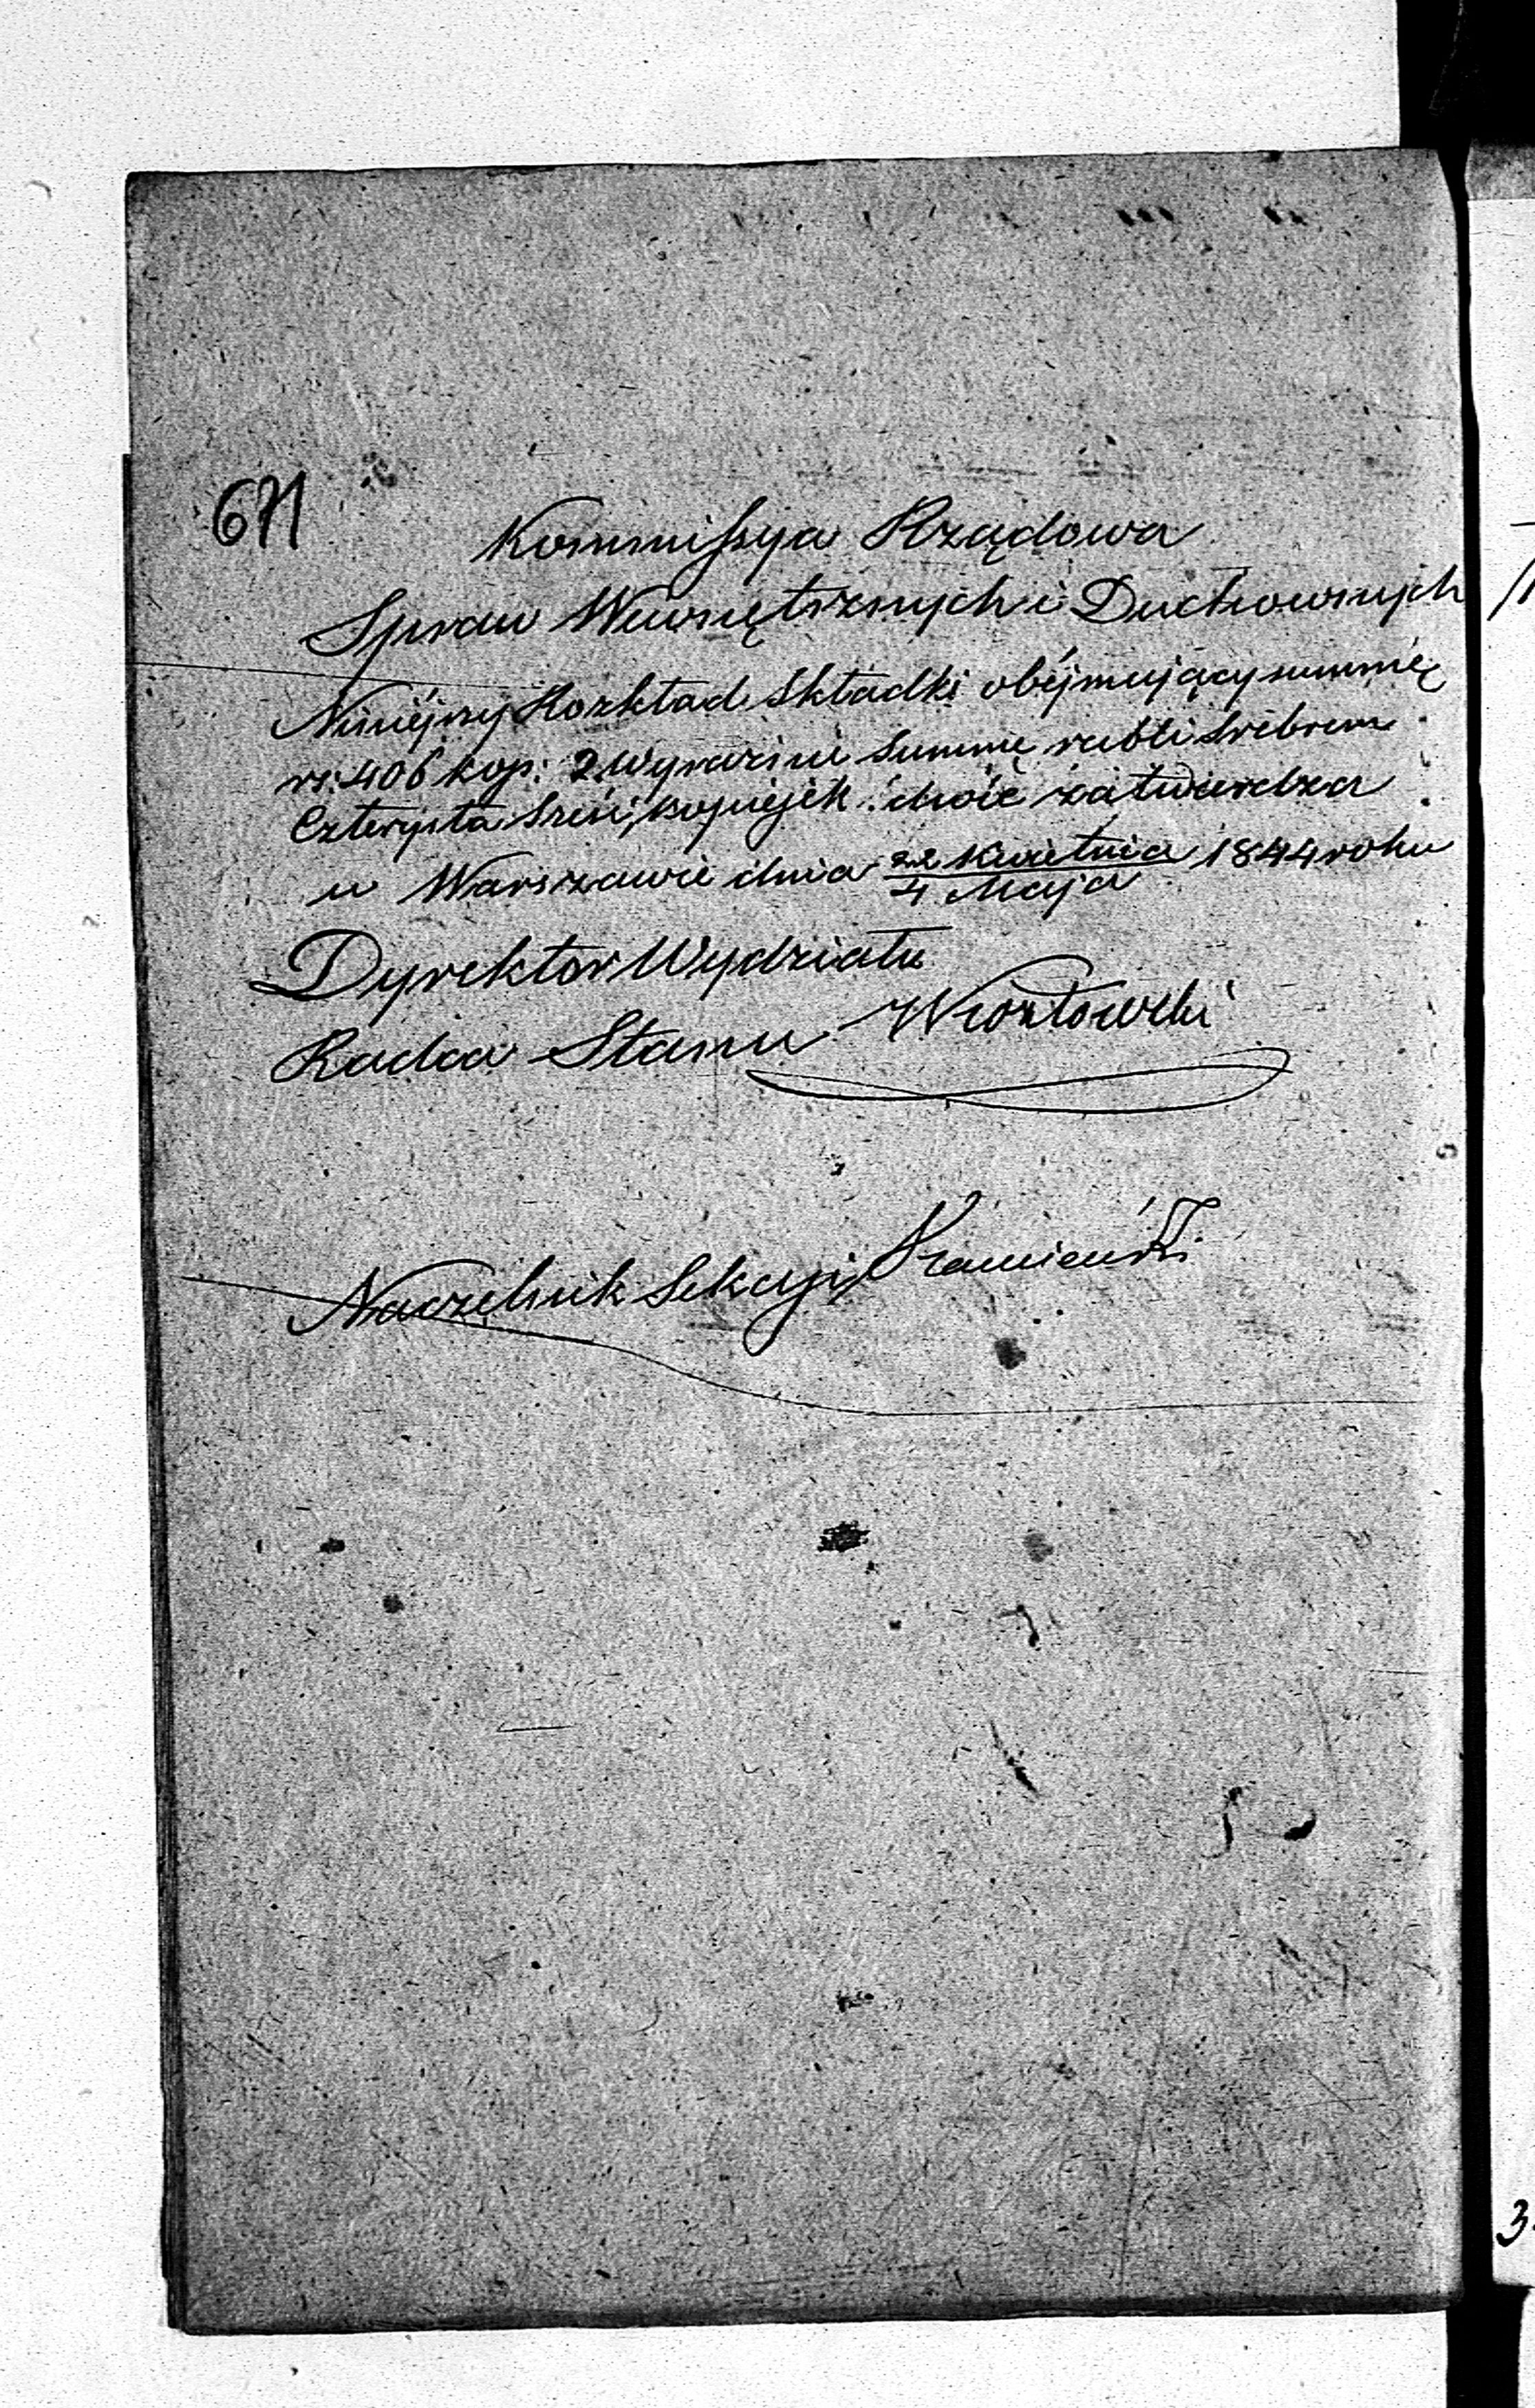 671
Kommissya Rządowa
Spraw Wewnętrznych i Duchownych
Niniéjszy Rozkład Składki obéjmujący summę
rs: 406 kop: 2 wyraźnie Summę rubli Srebrem
Czterysta Sześć, kopiejek dwie zatwierdza
w Warszawie dnia 22 Kwietnia / 4 Maja 1844 roku
Dyrektor Wydziału
Radca Stanu
Naczelnik Sekcyi